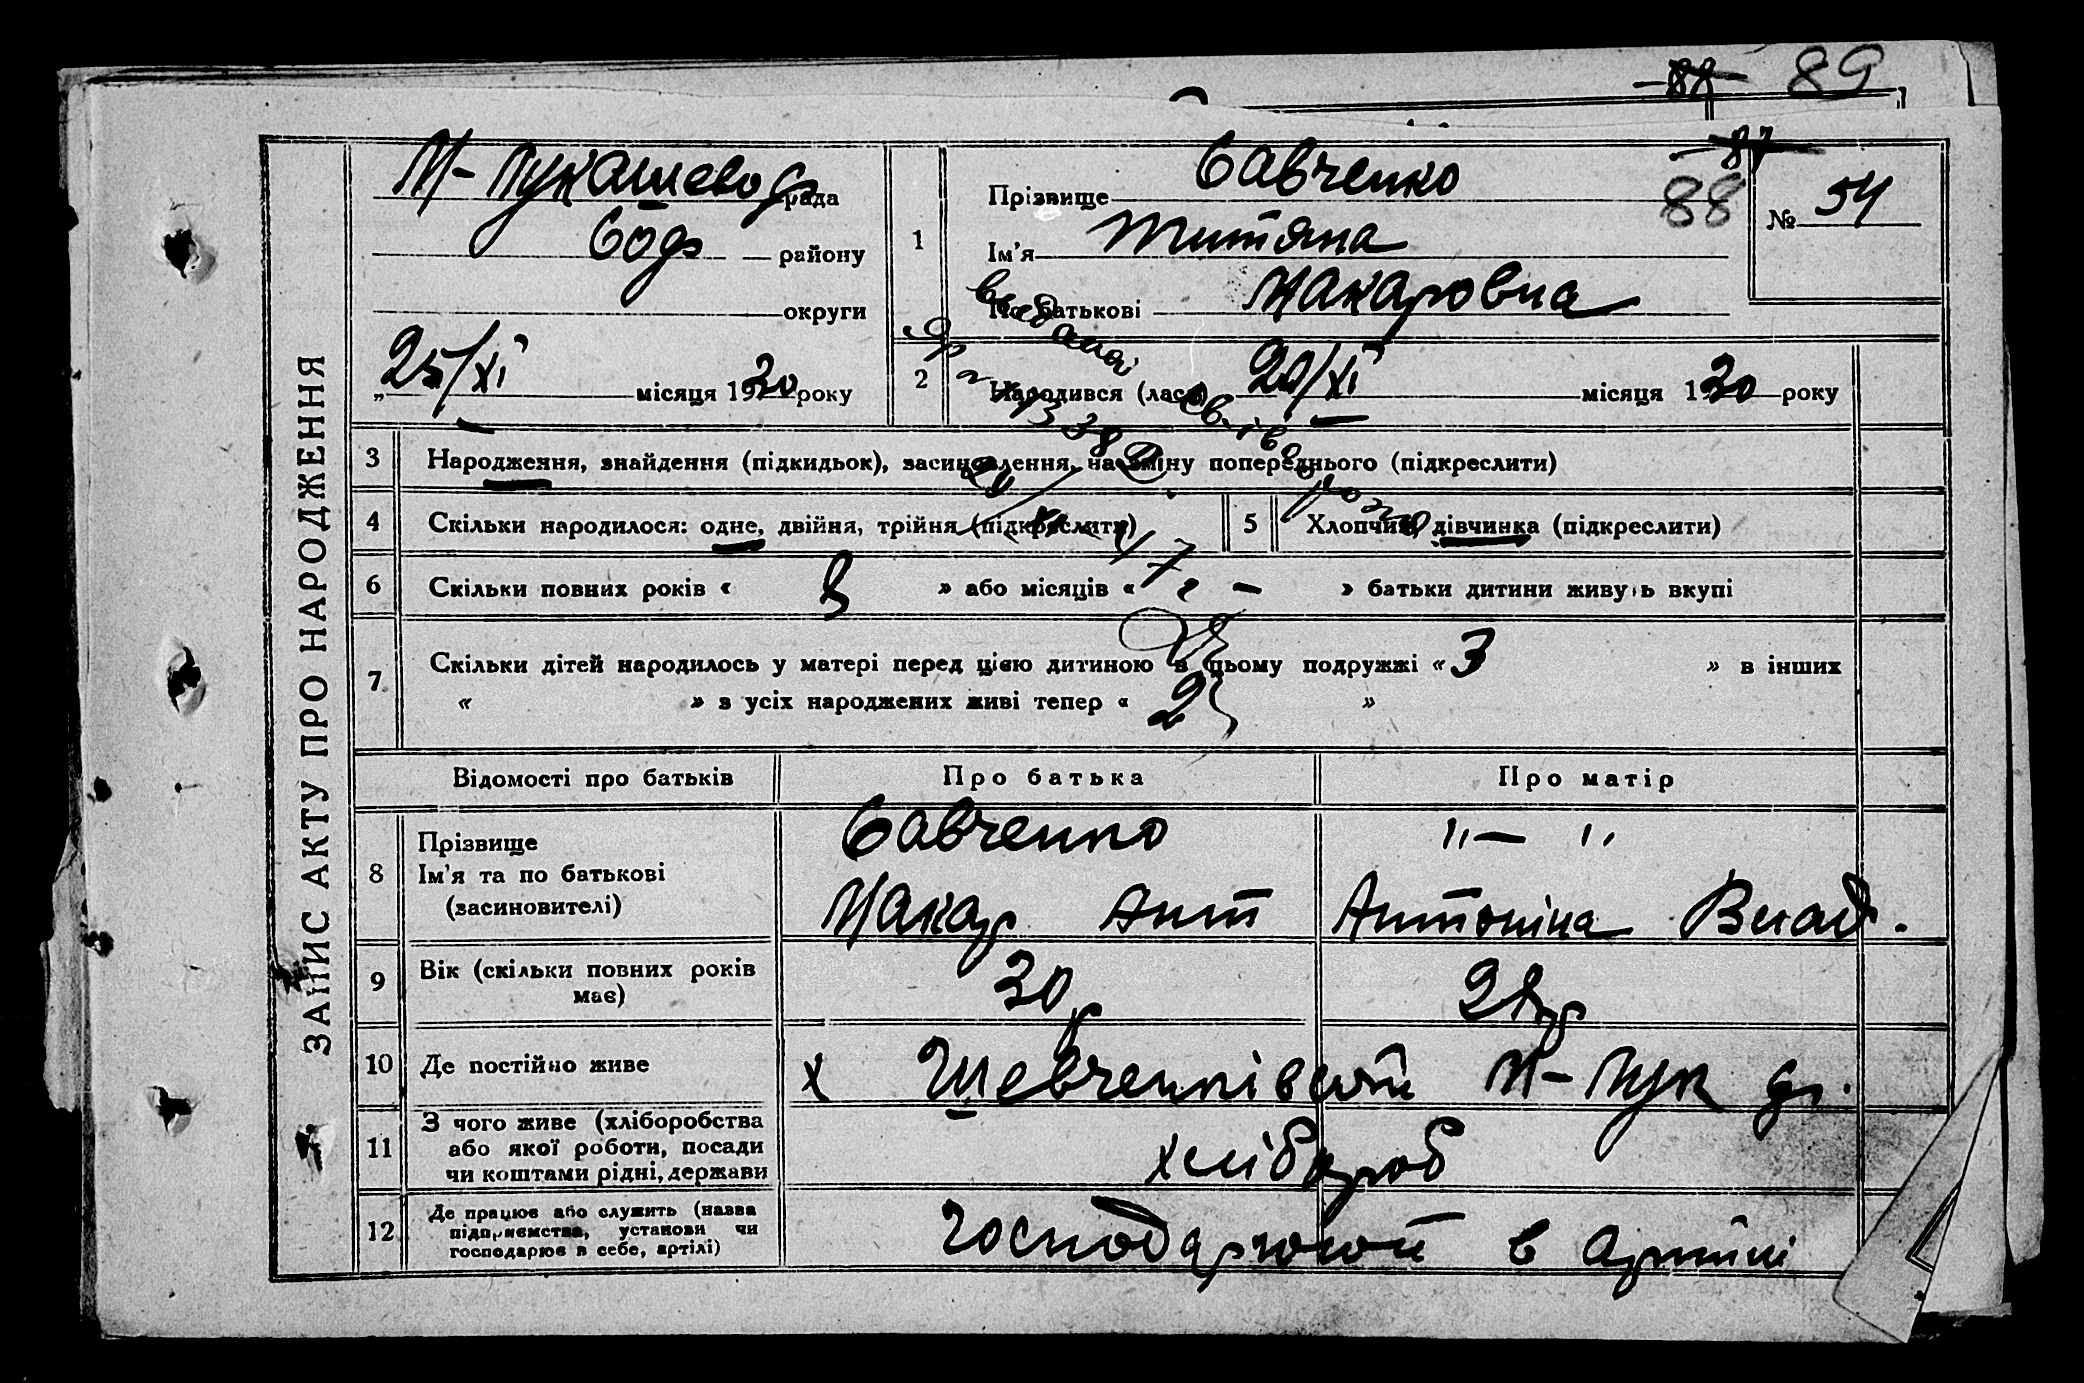 88 89
87
88
ЗАПИС АКТУ ПРО НАРОДЖЕННЯ
М-Лукашево др рада
району
округи
„ 25/XI місяця 1930 року
1
Прізвище Савченко
Ім'я Титяна
По батькові Макаровна
№ 54
2 Народився (лась) 20/XI місяця 1930 року
3 Народження, знайдення (підкидьок), засиновлення, на зміну попереднього (підкреслити)
4 Скільки народилося: одне, двійня, трійня (підкреслити)
5 Хлопчик, дівчинка (підкреслити)
6 Скільки повних років « 8 » або місяців « – » батьки дитини живуть вкупі
7 Скільки дітей народилось у матері перед цією дитиною в цьому подружжі « 3 » в інших
« » з усіх народжених живі тепер « 2 »
Відомості про батьків Про батька Про матір
8 Прізвище
Ім'я та по батькові
(засиновителі)
Савченко
Макар Ант
"—"
Антоніна Влад.
9 Вік (скільки повних років має) 30 р
10 Де постійно живе х Шевченківский М-Лук др.
11 З чого живе (хліборобства
або якої роботи, посади
чи коштами рідні, держави
хлібороб
12 Де працює або служить (назва
підприємства, установи чи
господарює в себе, артілі)
в артілі